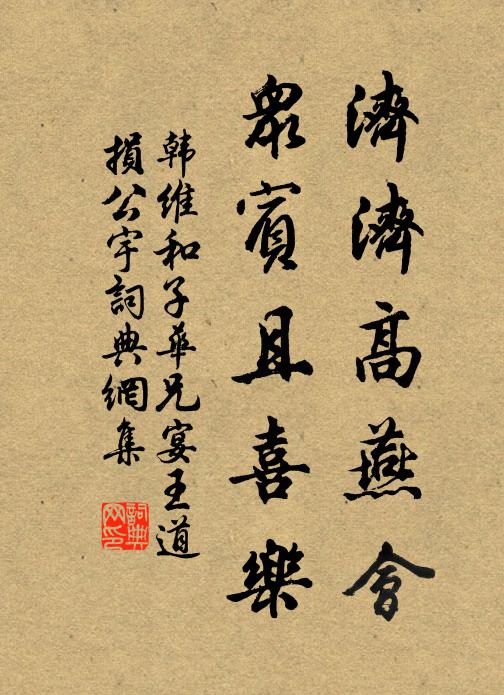 濟濟高燕會
眾賓且喜樂
韓維和子華兄宴王道
損公宇詞典網集
詞典网印